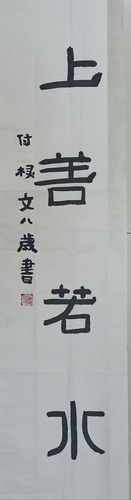 上善若水
付禄文八歳書